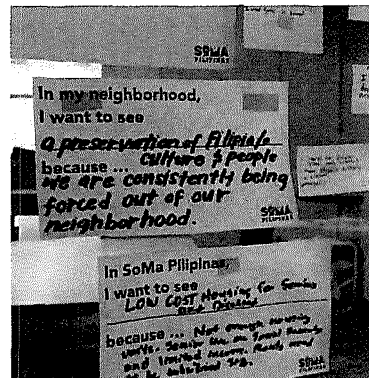 SOMA
PILIPINAS
In my neighborhood,
I want to see
a preservation of Filipin/o
culture & people
because ...
we are consistently being
forced out of our
neighborhood.
SOMA
PILIPINAS
In SoMa Pilipinas,
I want to see
LOW COST Housing for Seniors
and Disabled
because ... Not enough housing
units. Senior live on
and limited income. Needs
to be
SOMA
PILIPINAS